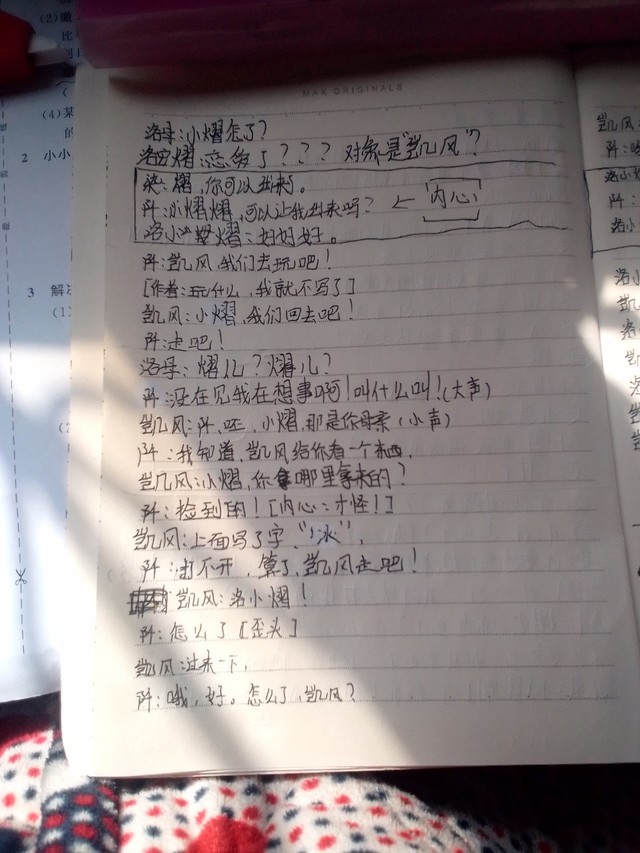 MAX ORIGINALS
洛母:小熠怎了?
洛 熠:恋 了??? 对象是"凯风"?
染:熠,你可以出来了。
阡:小熠熠,可以让我出来吗? ← 内心
洛小 熠:好好好。
阡:凯风,我们去玩吧!
[作者:玩什么,我就不写了]
凯风:小熠,我们回去吧!
阡:走吧!
洛母:熠儿?熠儿?
阡:没在见我在想事啊!叫什么叫!(大声)
凯风:阡、呸,小熠,那是你母亲(小声)
阡:我知道,凯风给你看一个东西,
凯风:小熠,你 哪里拿来的?
阡:捡到的![内心:才怪!]
凯风:上面写了字,"冰",
阡:打不开,算了,凯风走吧!
凯风:洛小熠!
阡:怎么了[歪头]
凯风:过来一下,
阡:哦,好。怎么了,凯风?
(2)
比
(4)某
的
2 小小
3 解决
(1)
凯风:
阡:
洛小
阡:
洛小